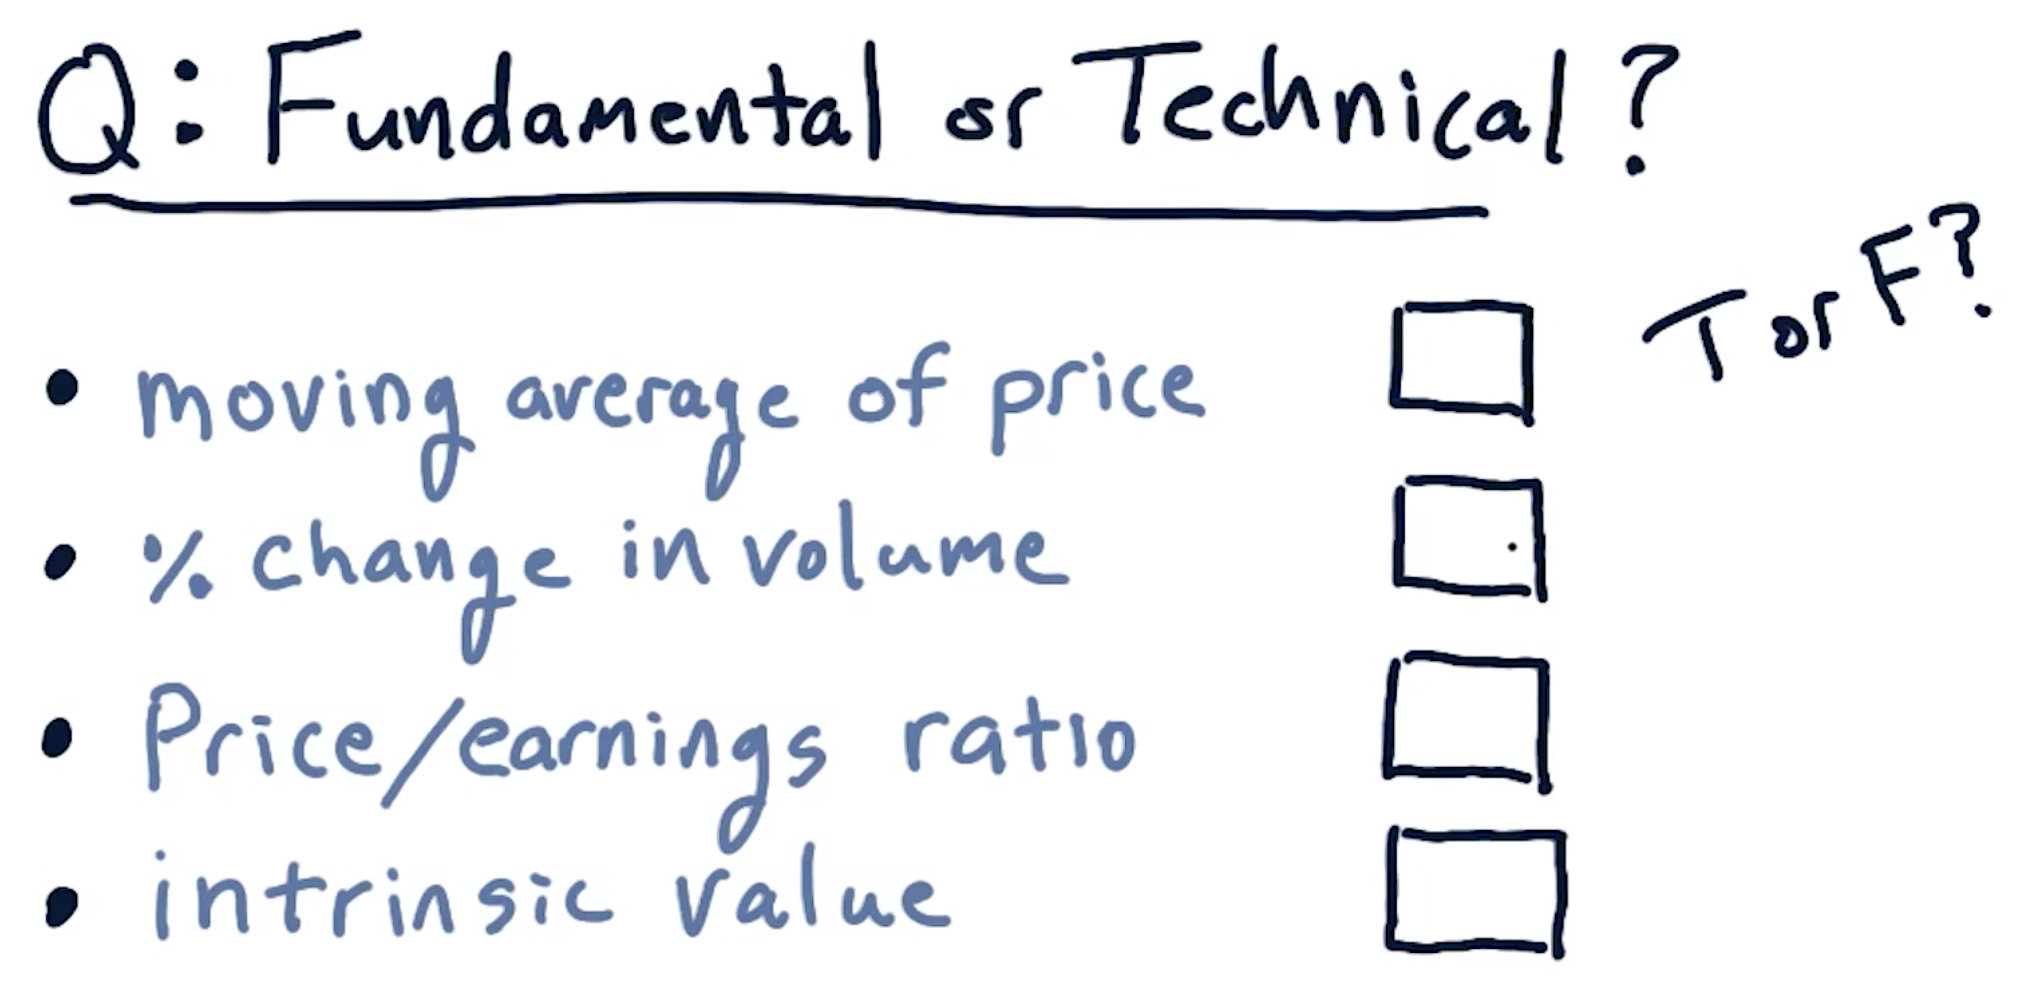 Q: Fundamental or Technical?
T or F?
• moving average of price
• % change in volume
• Price/earnings ratio
• intrinsic value